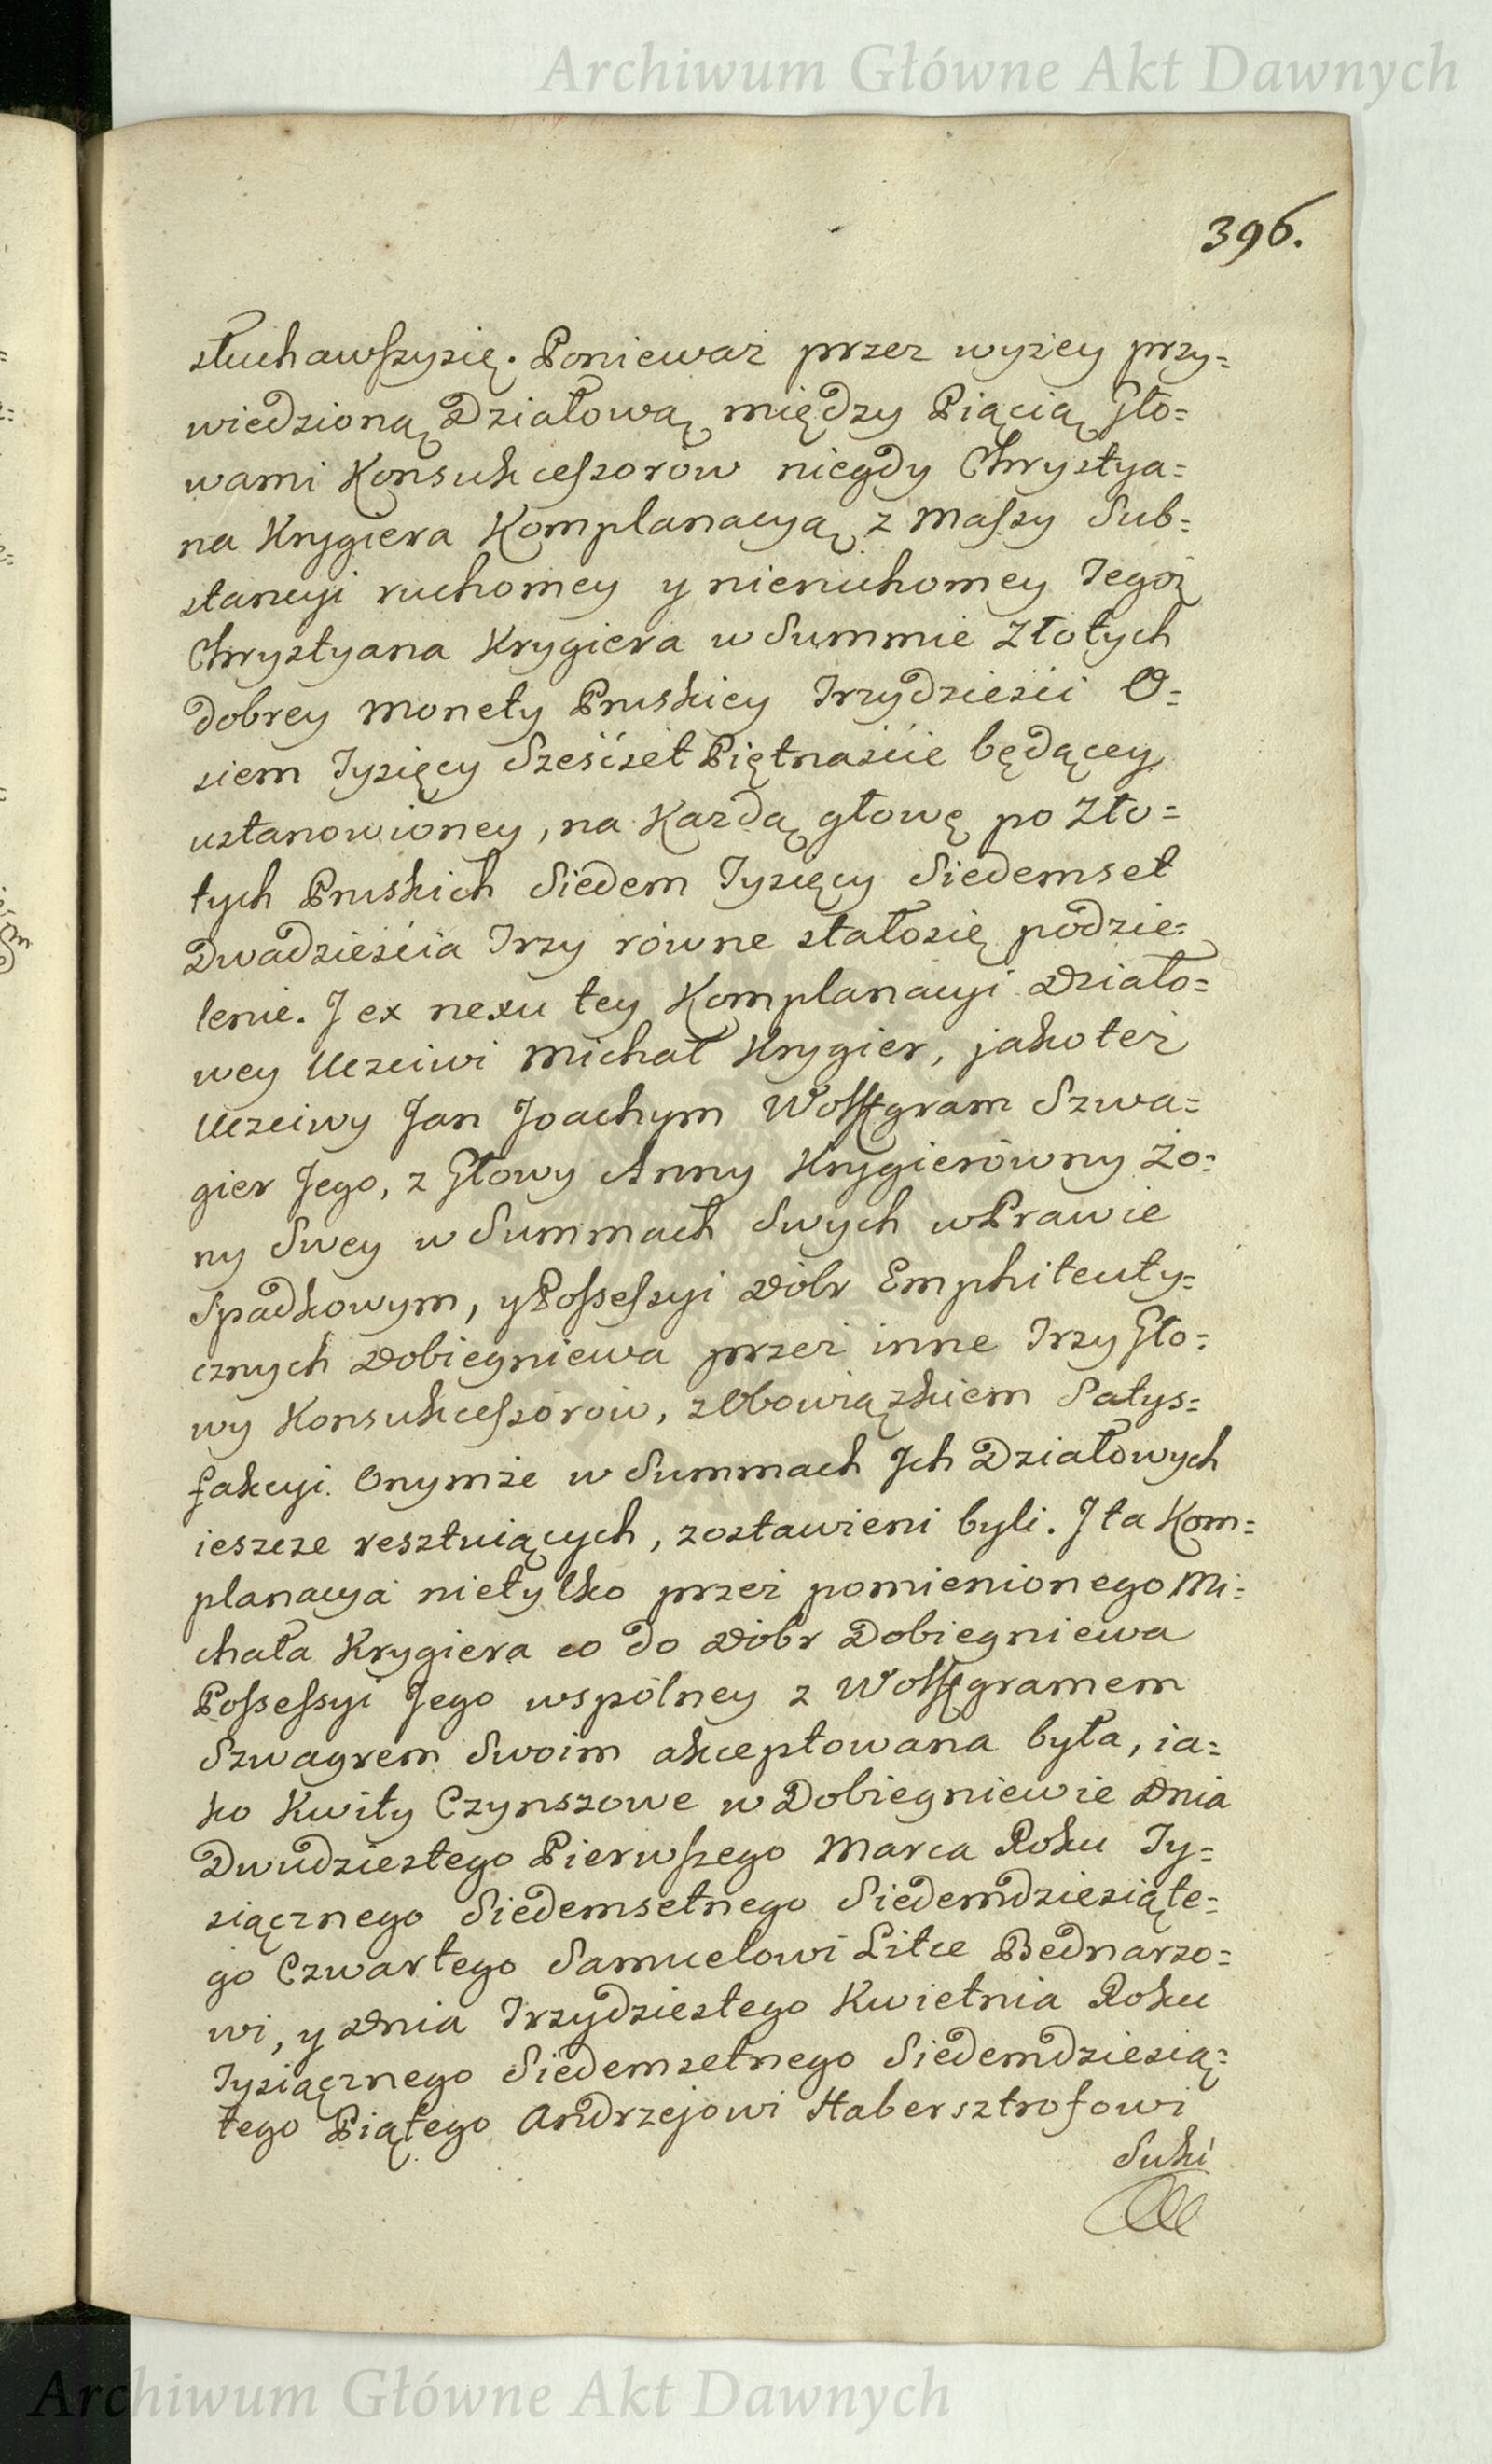 Archiwum Główne Akt Dawnych
396.
słuchawszysię. Ponieważ przez wyżey przy=
wiedzioną Działową między Piącią Gło=
wami Konsukcessorow niegdy Chrystya=
na Krygiera Komplanacyą z Massy Sub=
stancyi ruchomey y nieruchomey Tegoż
Chrystyana Krygiera w Summie Złotych
dobrey Monety Pruskiey Trzydzieści O=
siem Tysięcy Sześćset Piętnaście będącey
ustanowioney, na Każdą głowę po Zło=
tych Pruskich Siedem Tysięcy Siedemset
Dwadzieścia Trzy rowne stałosię podzie=
lenie. J ex nexu tey Komplanacyi Działo=
wey Uczciwi Michał Krygier, jakoteż
Uczciwy Jan Joachym Wolffgram Szwa=
gier Jego, z Głowy Anny Krygierówny Żo=
ny Swey w Summach Swych w Prawie
Spadkowym, y Possessyi Dóbr Emphiteuty=
cznych Dobiegniewa przez inne Trzy Gło=
wy Konsukcessórów, z Obowiązkiem Satys=
fakcyi Onymże w Summach Jch Działowych
ieszcze resztuiących, zostawieni byli. J ta Kom=
planacya nietylko przez pomienionego Mi=
chała Krygiera co do Dóbr Dobiegniewa
Possessyi Jego wspólney z Wolffgramem
Szwagrem Swoim akceptowana była, ia=
ko Kwity Czynszowe w Dobiegniewie Dnia
Dwudziestego Pierwszego Marca Roku Ty=
siącznego Siedemsetnego Siedemdziesiąte=
go Czwartego Samuelowi Litce Bednarzo=
wi, y Dnia Trzydziestego Kwietnia Roku
Tysiącznego Siedemsetnego Siedemdziesią=
tego Piątego Andrzejowi Habersztrofowi
Suki
Archiwum Główne Akt Dawnych